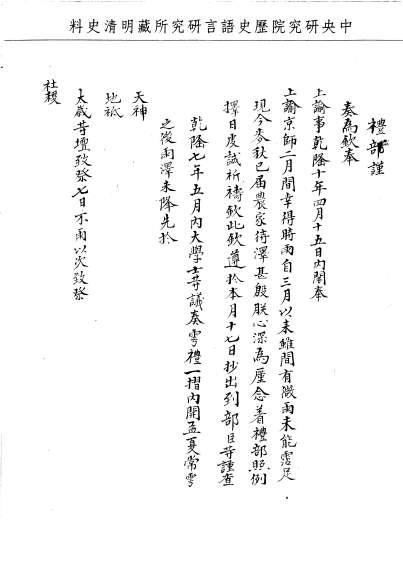 中央研究院歷史語言研究所藏明清史料
禮部謹
奏為欽奉
上諭事乾隆十年四月十五日內閣奉
上諭京師二月間幸得時雨自三月以來雖間有微雨未能霑足
現今麥秋已届農家待澤甚殷朕心深為廑念着禮部照例
擇日虔誠祈禱欽此欽遵於本月十七日抄出到部臣等謹查
乾隆七年五月內大學士等議奏雩禮一摺內開孟夏常雩
之後雨澤未降先於
天神
地祇
太歲等壇致祭七日不雨以次致祭
社稷